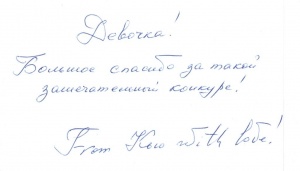 Девочка!
Большое спасибо за такой
замечательный конкурс!
From Kiev with love!